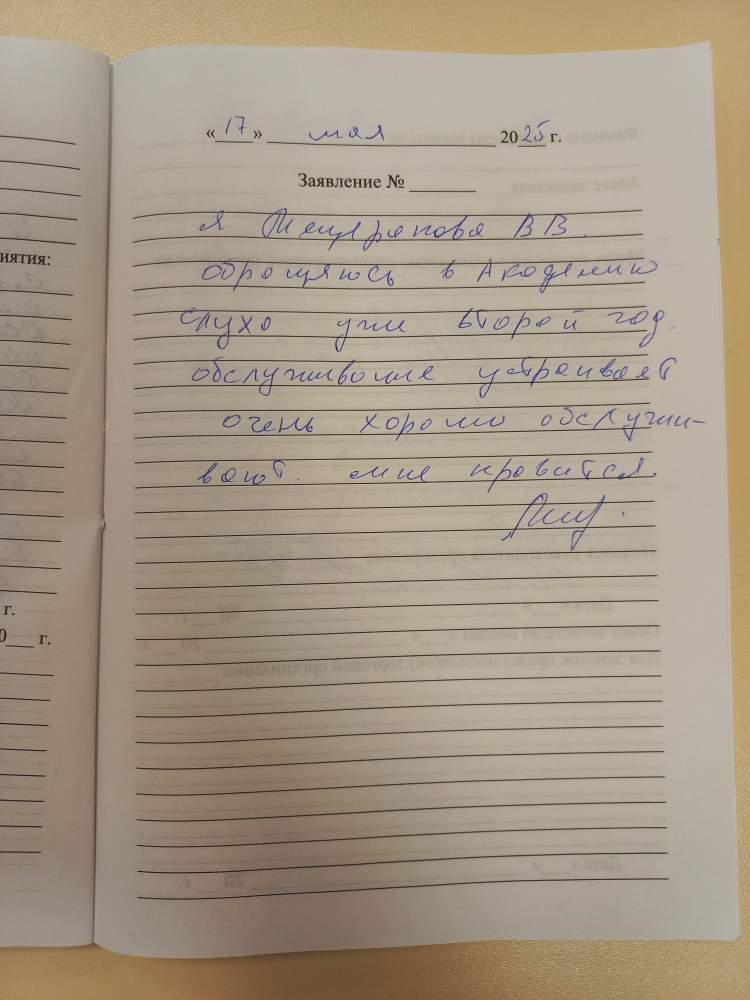 «17» мая 2025 г.
Заявление №
иятия:
я Мещерякова В В.
обращаюсь в Академию
слуха уже второй год.
обслуживание устраивает
очень хорошо обслужи-
вают. мне нравится.
г.
0___ г.